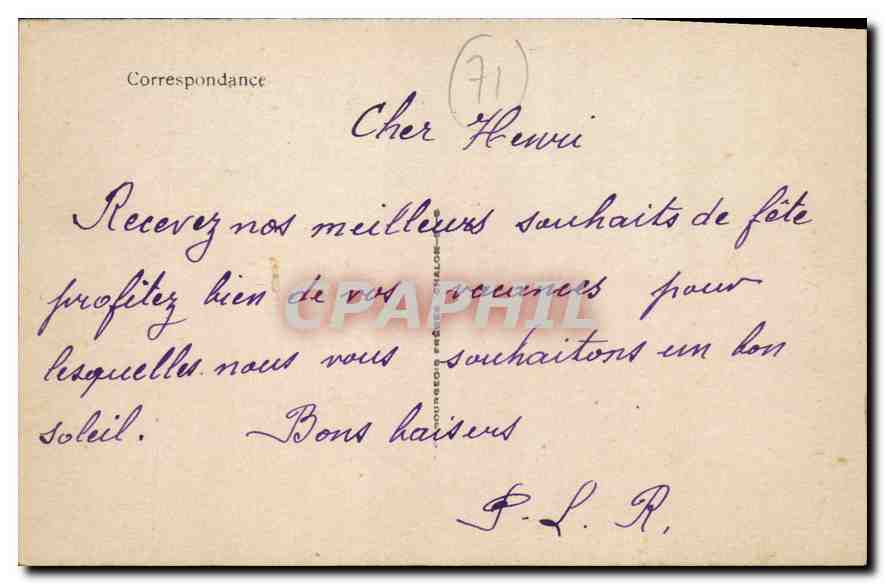 71
Correspondance
Cher Henri
Recevez nos meilleurs souhaits de fête
profitez bien de vos vacances pour
lesquelles nous vous souhaitons un bon
soleil. Bons baisers
P. L. R.
BOURGEOIS FRÈRES CHALON
CPAPHIL